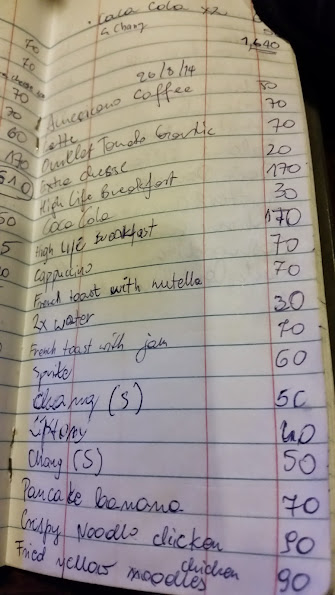 Coca Cola x2
4 Chang
1,640
26/8/14
Americano coffee 80
Latte 70
Omellet Tomato Garlic 70
Extra cheese 20
High Life Breakfast 170
Coca Cola 30
High Life Breakfast 170
Cappucino 70
French toast with nutella 70
2x water 30
French toast with jam 70
Sprite 60
Chang (S) 50
Liptony 40
Chang (S) 50
Pancake banana 70
Crispy Noodle chicken 90
Fried yellow noodles chicken 90
70
70
70
70
60
170
510
50